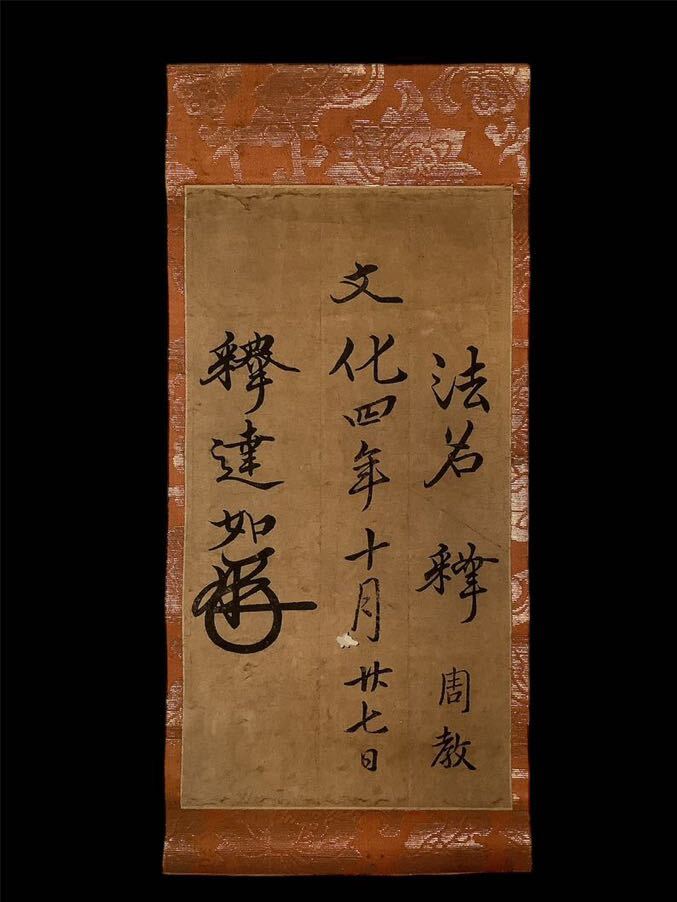 法名 釋 周教
文化四年十月廿七日
釋達如